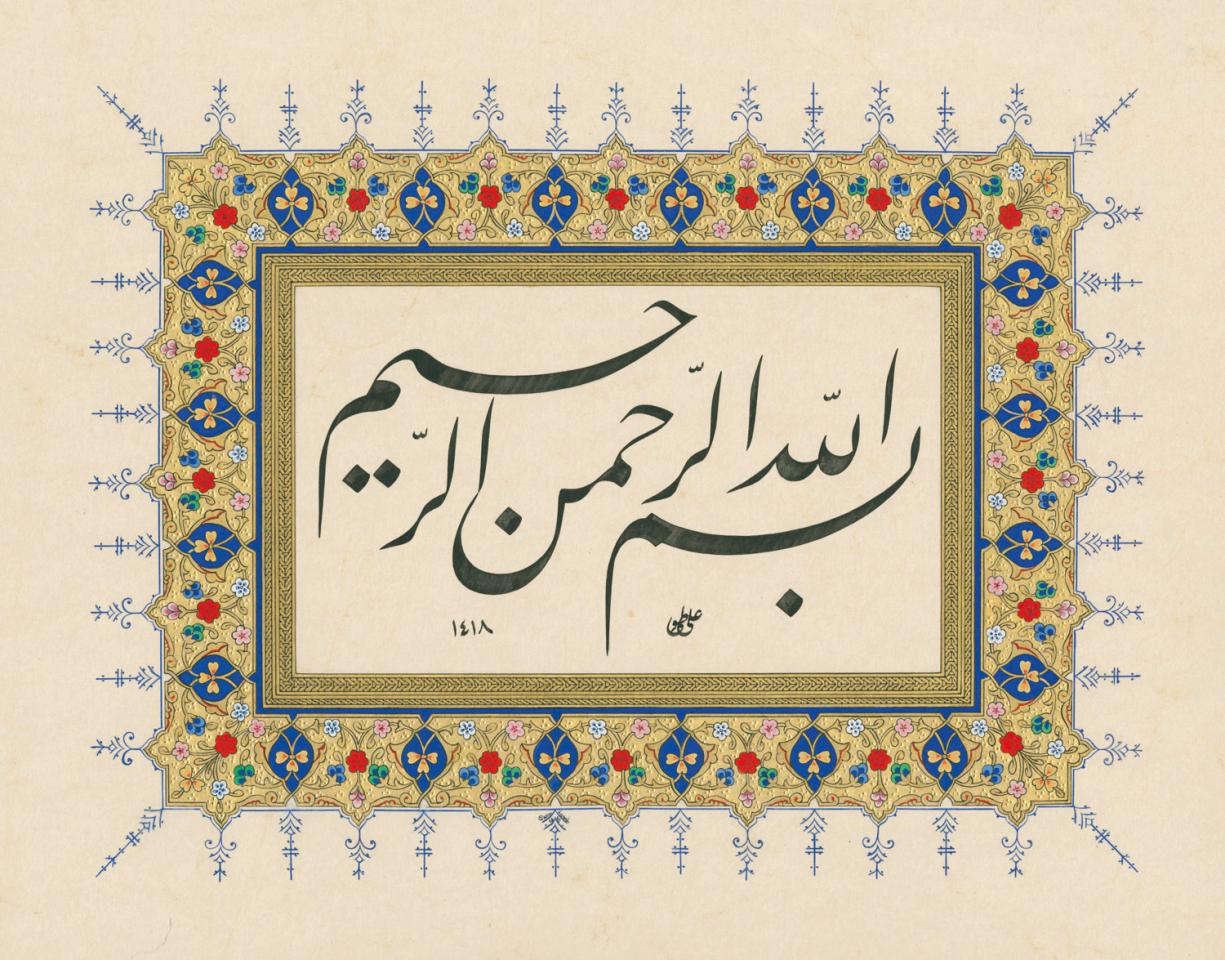 بسم الله الرّحمن الرّحيم
١٤١٨